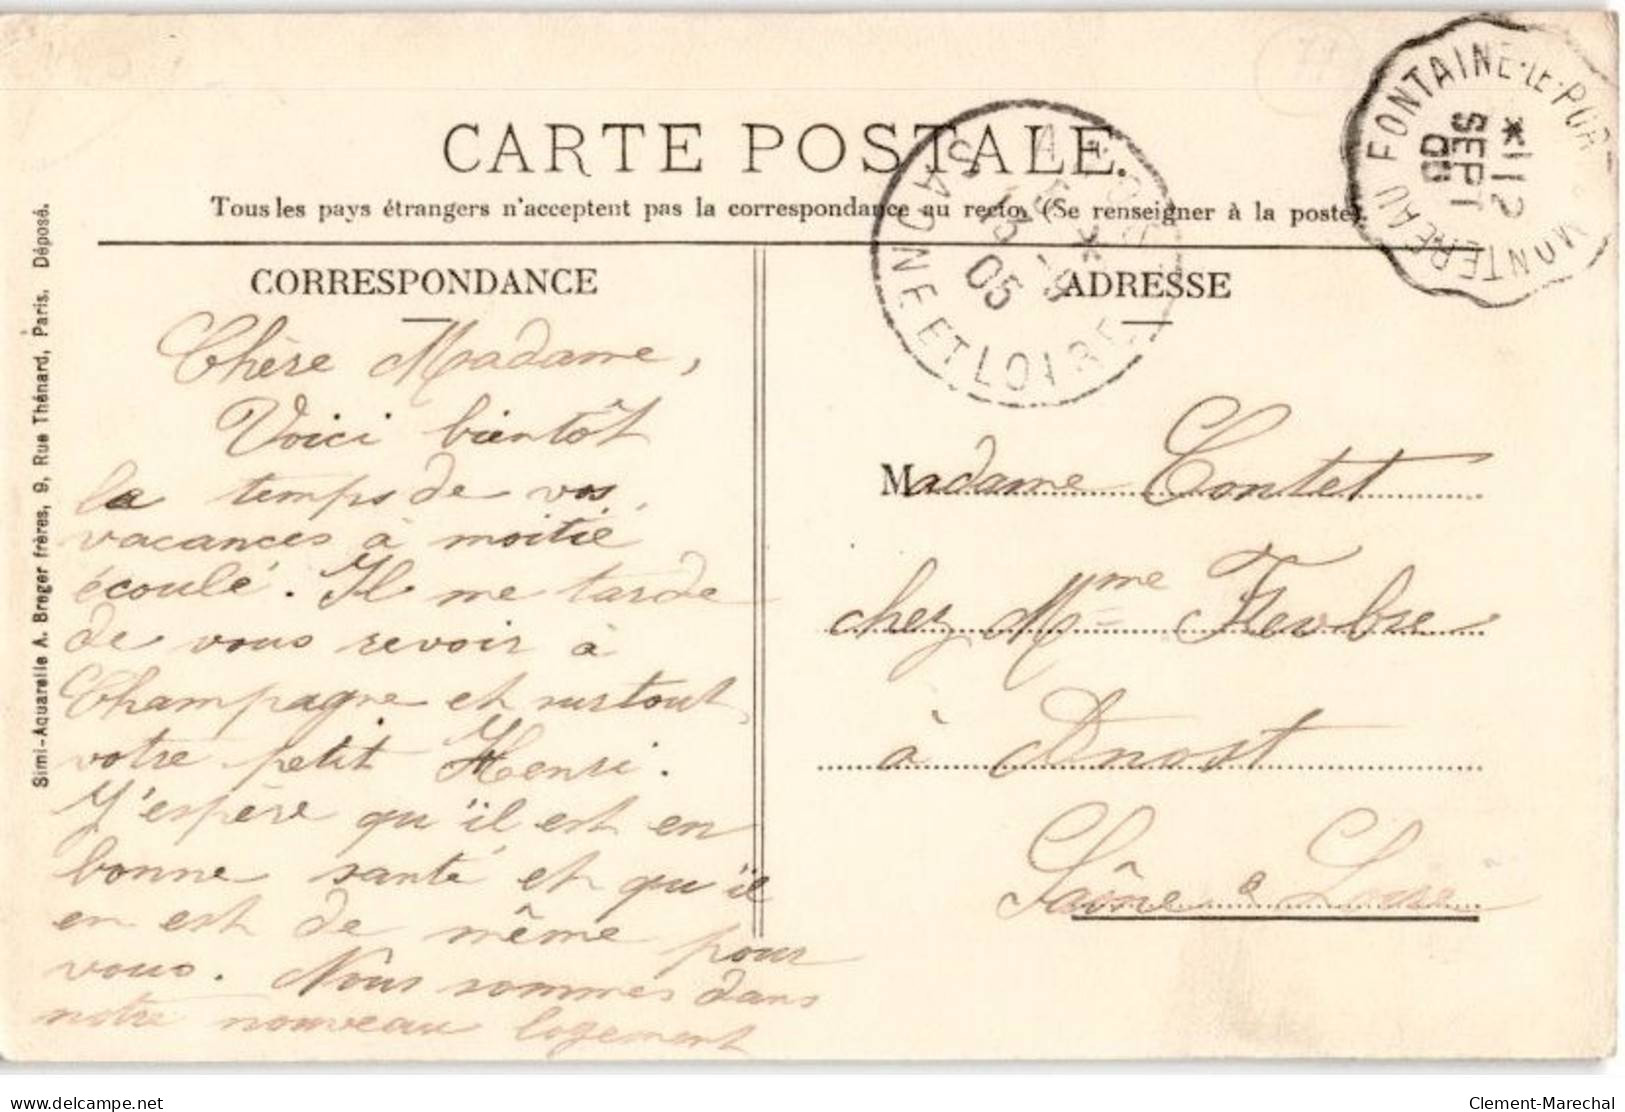 CARTE POSTALE.
Tous les pays étrangers n'acceptent pas la correspondance au recto, (Se renseigner à la poste).
CORRESPONDANCE
Chère Madame,
Voici bientôt
le temps de vos
vacances à moitié
écoulé. Il me tarde
de vous revoir à
Champagne et surtout
votre petit Henri.
J'espère qu'il est en
bonne santé et qu'il
en est de même pour
vous. Nous sommes dans
notre nouveau logement
ADRESSE
Madame Contet
chez Mme
à Anost
Saône & Loire
Simi-Aquarelle A. Breger frères, 9, Rue Thénard, Paris. Déposé.
SAONE ET LOIRE
13 -9
05
MONTEREAU FONTAINE-LE-POR
*112
SEPT
05
77
delcampe.net
Clement-Marechal